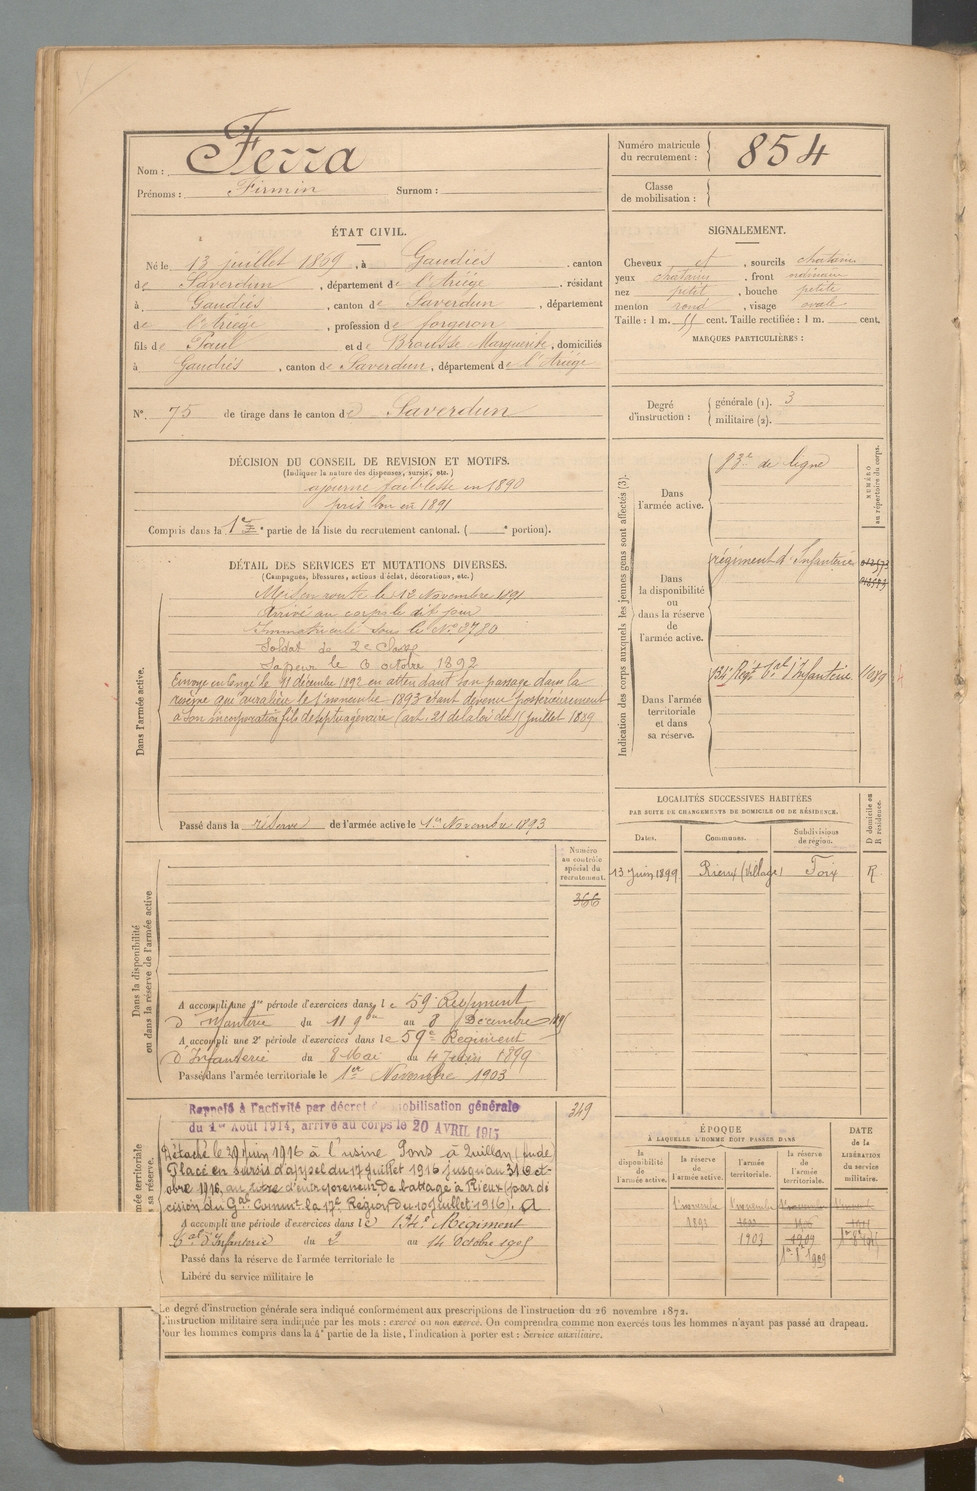 Nom : Ferra
Prénoms : Firmin Surnom :
Numéro matricule du recrutement : 854
Classe de mobilisation :
ÉTAT CIVIL.
Né le 13 juillet 1869, à Gaudiès, canton
de Saverdun, département de l'Ariège, résidant
à Gaudiès, canton de Saverdun, département
de l'Ariège, profession de forgeron
fils de Paul et de Brousse Marguerite, domiciliés
à Gaudiès, canton de Saverdun, département de l'Ariège
N° 75 de tirage dans le canton de Saverdun
SIGNALEMENT.
Cheveux et, sourcils chatains
yeux chatains, front ordinaire
nez petit, bouche petite
menton rond, visage ovale
Taille : 1 m. 55 cent. Taille rectifiée : 1 m. cent.
MARQUES PARTICULIÈRES :
Degré d'instruction :
générale (1). 3
militaire (2).
DÉCISION DU CONSEIL DE REVISION ET MOTIFS.
(Indiquer la nature des dispenses, sursis, etc.)
ajourné faiblesse en 1890
pris bon en 1891
Compris dans la 1re partie de la liste du recrutement cantonal. ( e portion).
DÉTAIL DES SERVICES ET MUTATIONS DIVERSES.
(Campagnes, blessures, actions d'éclat, décorations, etc.)
Dans l'armée active.
Mis en route le 12 Novembre 1891
Arrivé au corps le dit jour
Immatriculé sous le N° 8780
Soldat de 2e Classe
Sapeur le octobre 1892
Envoyé en Congé le 11 décembre 1892 en attendant son passage dans la
réserve qui aura lieu le 1er novembre 1893 étant devenu postérieurement
à son incorporation fils de septuagénaire (art. 21 de la loi du 15 juillet 1889
Passé dans la réserve de l'armée active le 1er Novembre 1893
Indication des corps auxquels les jeunes gens sont affectés (3).
NUMÉRO au répertoire du corps.
Dans l'armée active.
83e de ligne
Dans la disponibilité ou dans la réserve de l'armée active.
régiment d'Infanterie
Dans l'armée territoriale et dans sa réserve.
134e Régt tal d'Infanterie 11089
LOCALITÉS SUCCESSIVES HABITÉES
PAR SUITE DE CHANGEMENTS DE DOMICILE OU DE RÉSIDENCE.
Dates. Communes. Subdivisions de région. D domicile ou R résidence.
13 Juin 1899 Rieux (Village) Foix R
Dans la disponibilité ou dans la réserve de l'armée active
Numéro au contrôle spécial du recrutement.
366
A accompli une 1re période d'exercices dans le 59e Régiment
d'Infanterie du 11 9bre au 8 Décembre
A accompli une 2e période d'exercices dans le 59e Régiment
d'Infanterie du 8 Mai au 4 Juin 1899
Passé dans l'armée territoriale le 1er Novembre 1903
349
Rappelé à l'activité par décret de mobilisation générale
du 1er Août 1914, arrivé au corps le 20 AVRIL 1915
Détaché le 29 Juin 1916 à l'usine Pons à Quillan (Aude)
Placé en sursis d'appel du 17 Juillet 1916 jusqu'au 31 Oct-
obre 1916, au titre d'entrepreneur de battage à Rieux (par dé
cision du Gal Commt la 17e Région du 10 Juillet 1916).
A accompli une période d'exercices dans le 134e Régiment
tal d'Infanterie du 2 au 14 Octobre 1905
Passé dans la réserve de l'armée territoriale le
Libéré du service militaire le
ÉPOQUE
À LAQUELLE L'HOMME DOIT PASSER DANS
la disponibilité de l'armée active. la réserve de l'armée active. l'armée territoriale. la réserve de l'armée territoriale.
DATE de la LIBÉRATION du service militaire.
1er novembre 1893
1er novembre 1903
1909
Le degré d'instruction générale sera indiqué conformément aux prescriptions de l'instruction du 26 novembre 1872.
L'instruction militaire sera indiquée par les mots : exercé ou non exercé. On comprendra comme non exercés tous les hommes n'ayant pas passé au drapeau.
Pour les hommes compris dans la 4e partie de la liste, l'indication à porter est : Service auxiliaire.